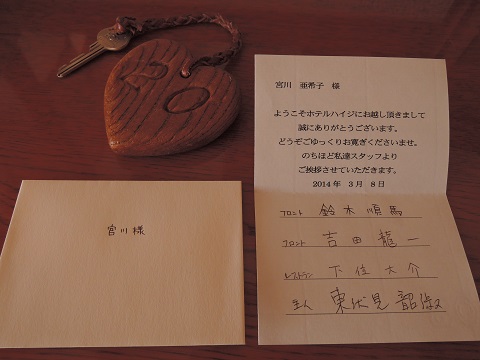 20
宮川 亜希子 様
ようこそホテルハイジにお越し頂きまして
誠にありがとうございます。
どうぞごゆっくりお寛ぎくださいませ。
のちほど私達スタッフより
ご挨拶させていただきます。
2014年 3月 8日
フロント 鈴木順馬
フロント 吉田龍一
レストラン 下位大介
主人 東伏見韶俶
宮川様